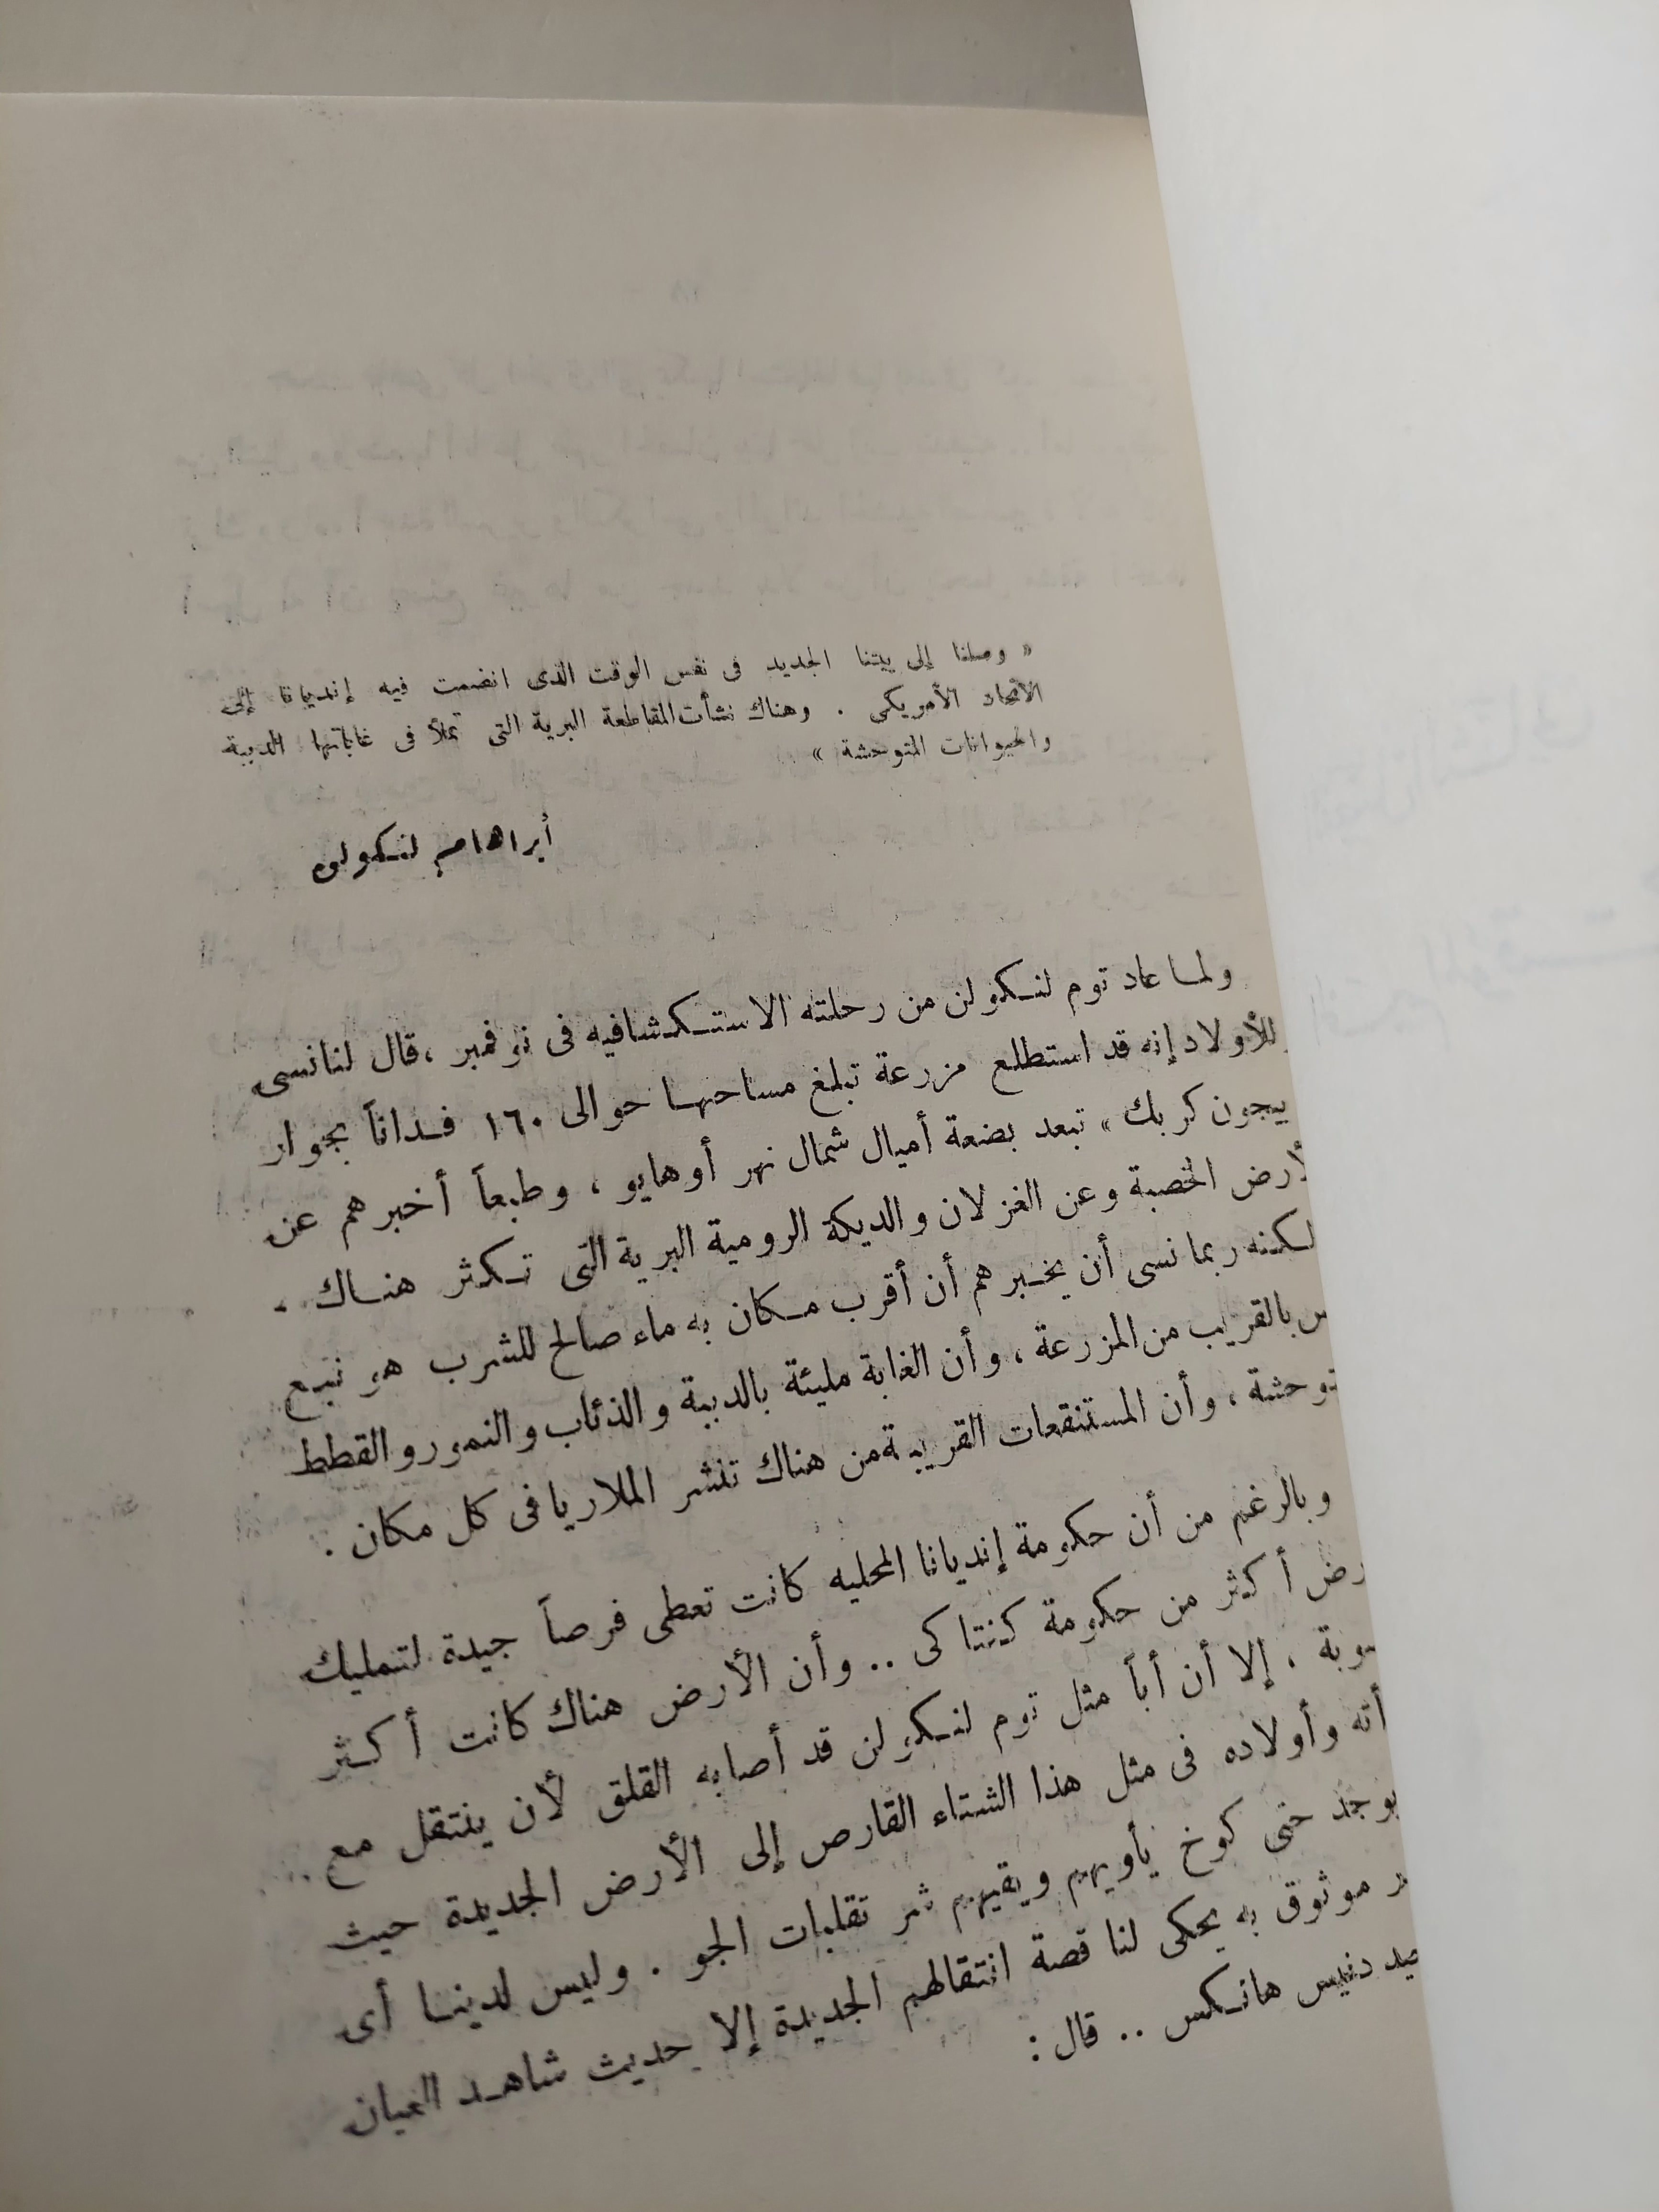 « وصلنا إلى بيتنا الجديد فى نفس الوقت الذى انضمت فيه إنديانا إلى
الاتحاد الأمريكى . وهناك نشأت المقاطعة البرية التى تملأ فى غاباتها الدببة
والحيوانات المتوحشة »
أبراهام لنكولن
ولما عاد توم لنكولن من رحلته الاستكشافيه فى نوفمبر ، قال لنانسى
للأولاد إنه قد استطلع مزرعة تبلغ مساحتها حوالى ١٦٠ فداناً بجوار
بيجون كريك » تبعد بضعة أميال شمال نهر أوهايو ، وطبعاً أخبرهم عن
الأرض الخصبة وعن الغزلان والديكة الرومية البرية التى تكثر هناك .
لكنه ربما نسى أن يخبرهم أن أقرب مكان به ماء صالح للشرب هو نبع
بالقريب من المزرعة ، وأن الغابة مليئة بالدببة والذئاب والنمور والقطط
توحشة ، وأن المستنقعات القريبة من هناك تنشر الملاريا فى كل مكان .
وبالرغم من أن حكومة إنديانا المحليه كانت تعطى فرصاً جيدة لتمليك
رض أكثر من حكومة كنتاكى .. وأن الأرض هناك كانت أكثر
وبة ، إلا أن أباً مثل توم لنكولن قد أصابه القلق لأن ينتقل مع
أته وأولاده فى مثل هذا الشتاء القارص إلى الأرض الجديدة حيث
يوجد حتى كوخ يأويهم ويقيهم شر تقلبات الجو . وليس لدينا أى
ر موثوق به يحكى لنا قصة انتقالهم الجديدة إلا حديث شاهد العيان
يد دنيس هانكس .. قال :